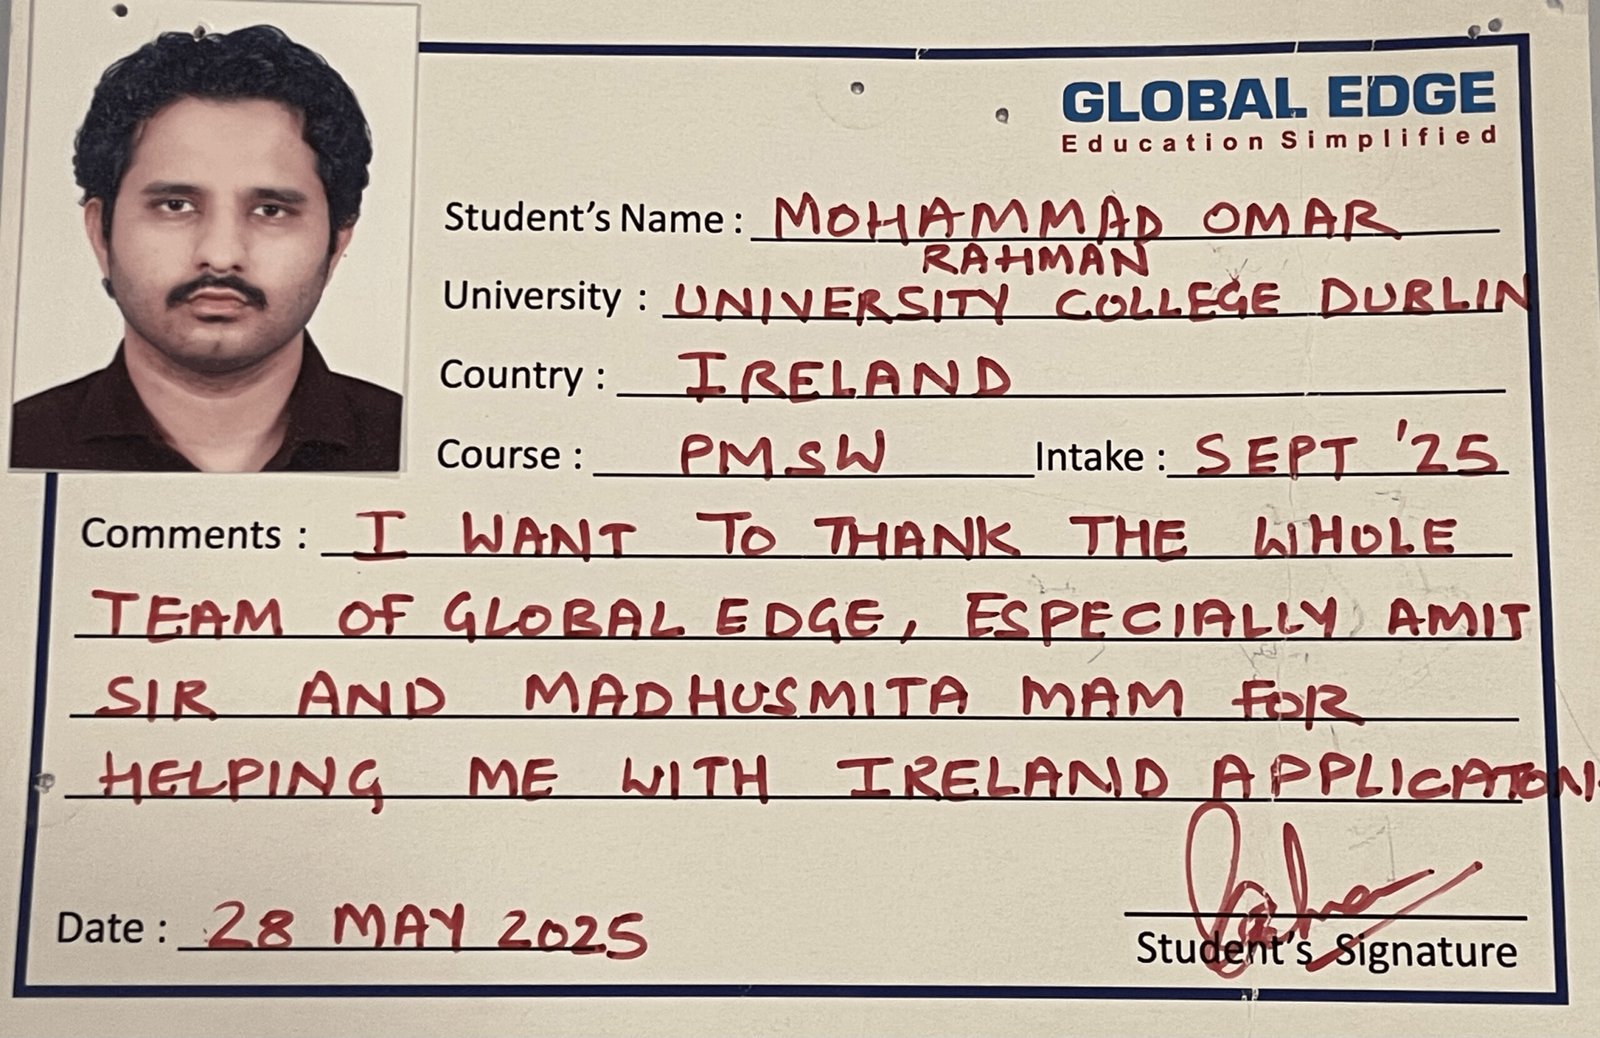 GLOBAL EDGE
Education Simplified
Student's Name : MOHAMMAD OMAR
RAHMAN
University : UNIVERSITY COLLEGE DUBLIN
Country : IRELAND
Course : PMSW Intake : SEPT '25
Comments : I WANT TO THANK THE WHOLE
TEAM OF GLOBAL EDGE, ESPECIALLY AMIT
SIR AND MADHUSMITA MAM FOR
HELPING ME WITH IRELAND APPLICATON.
Date : 28 MAY 2025
Student's Signature